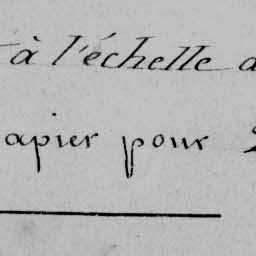 à l'échelle
apier pour